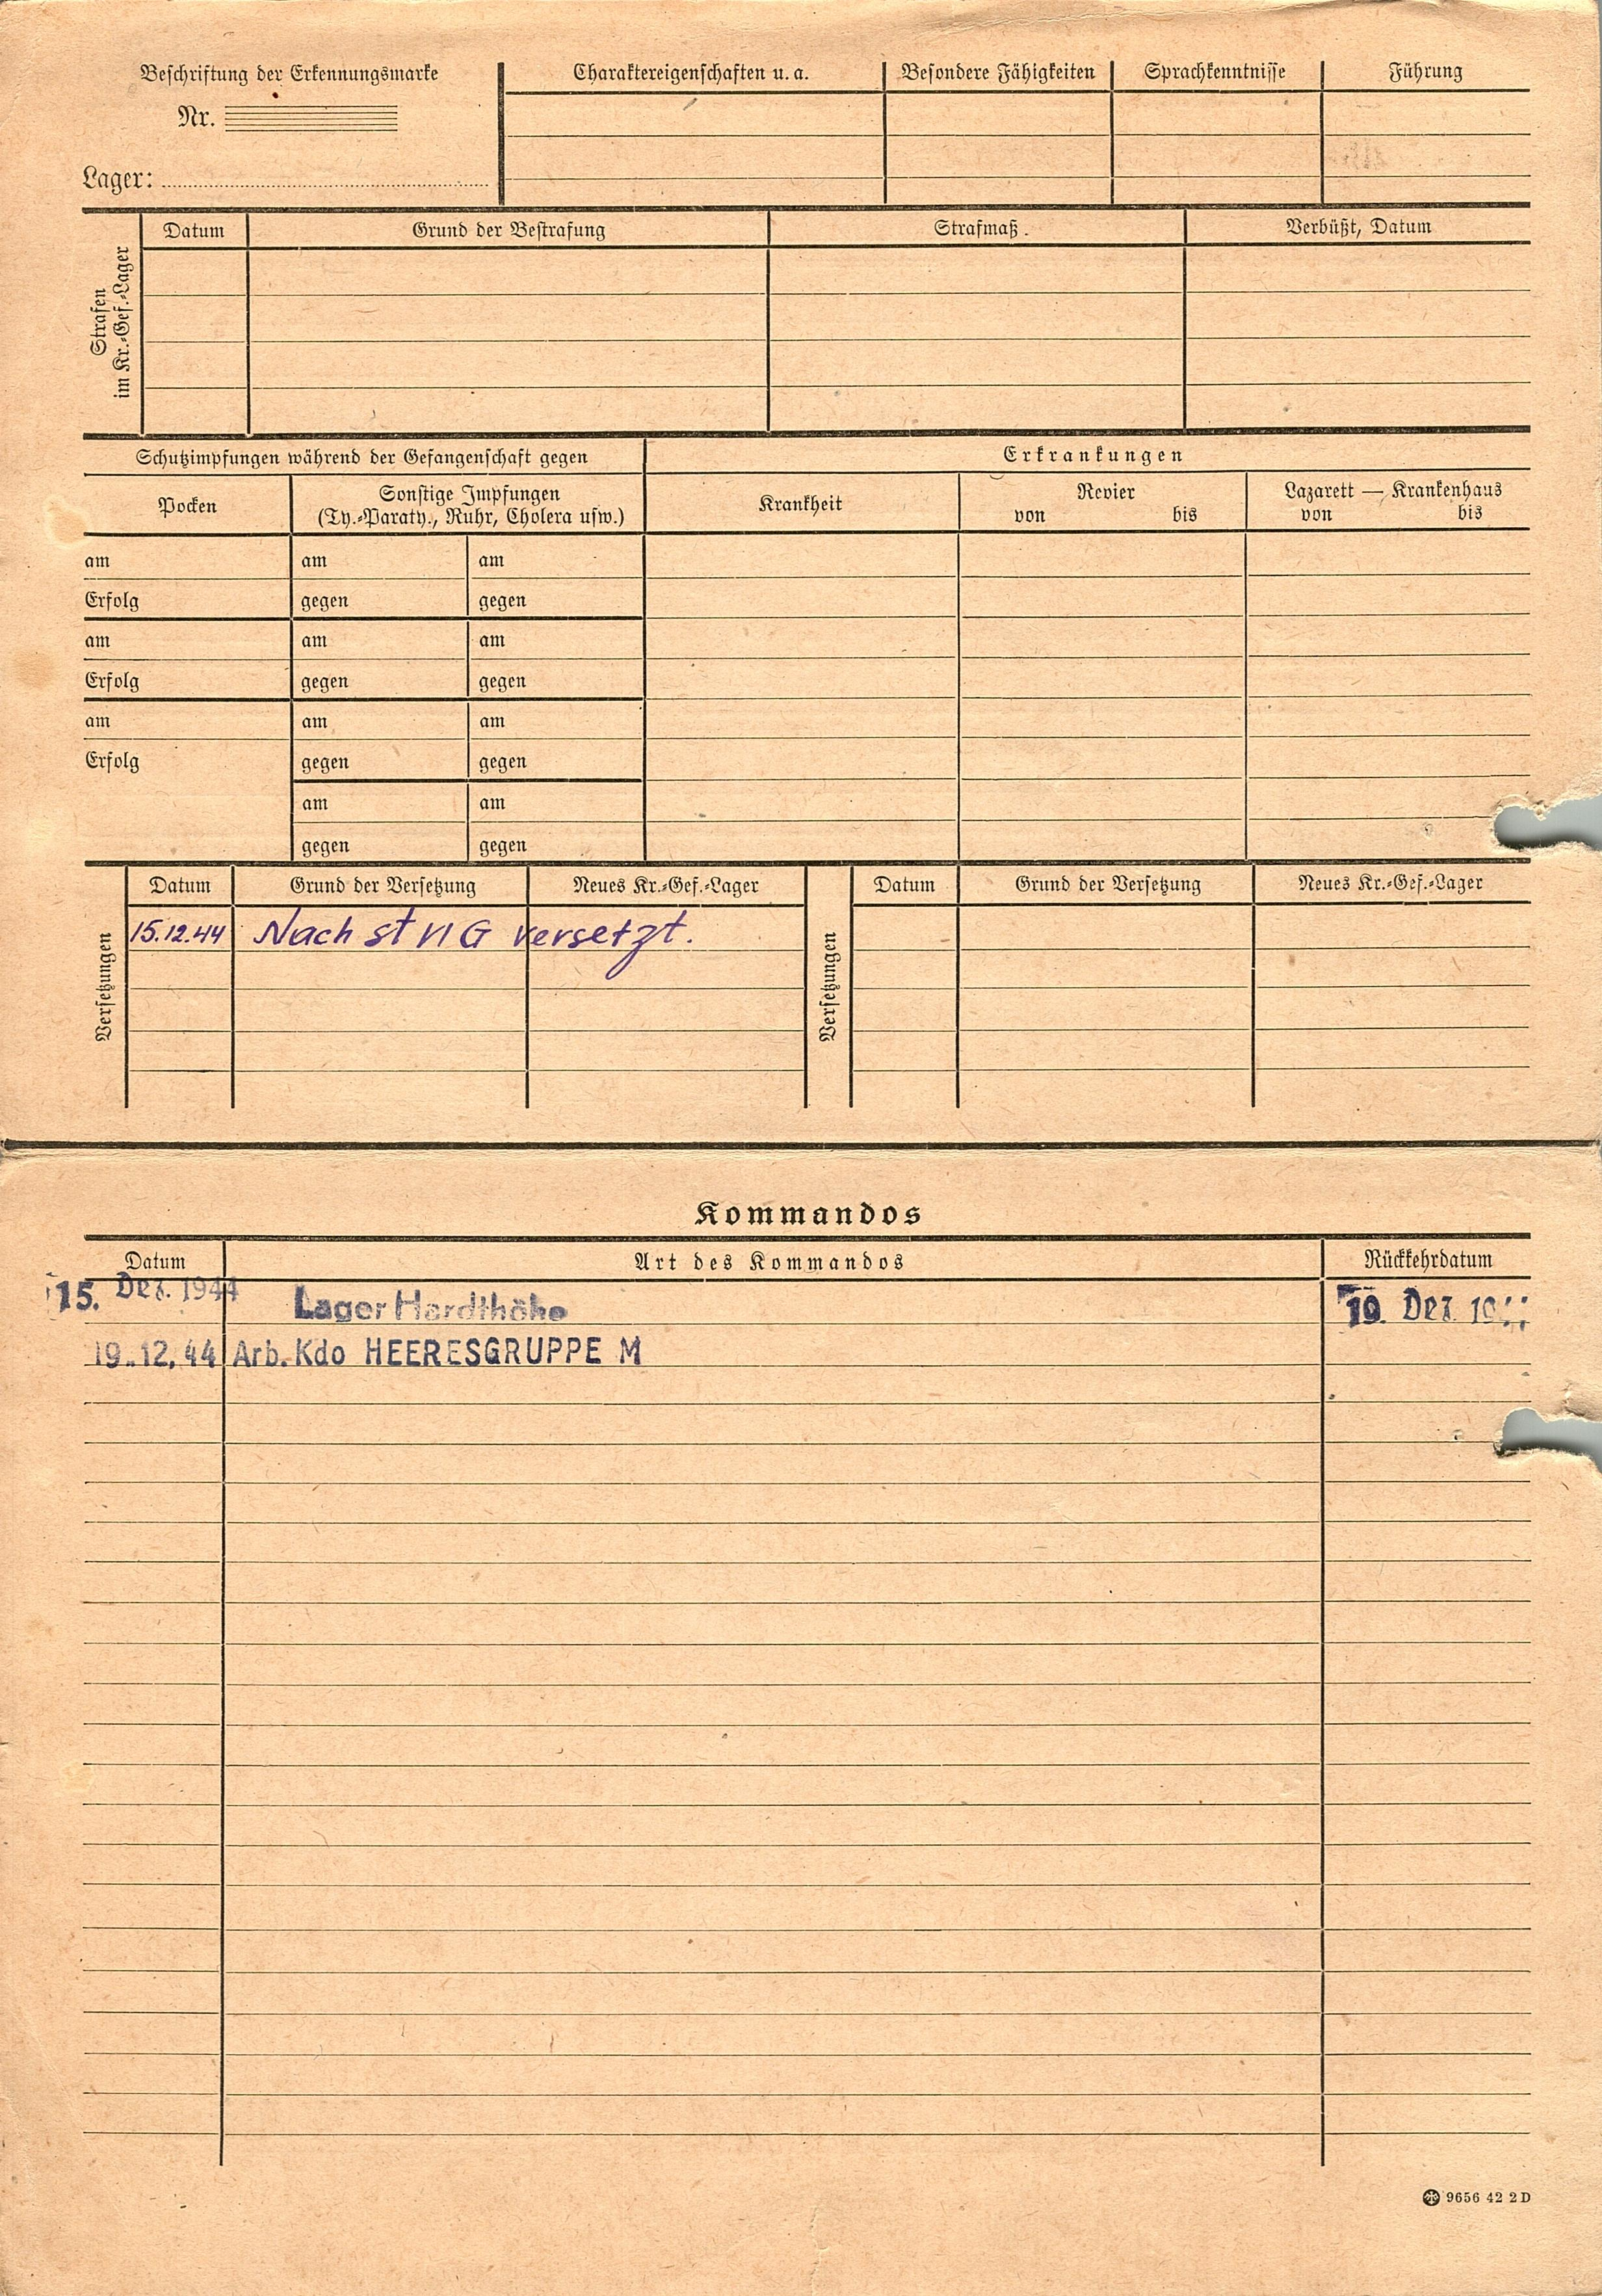 Beschriftung der Erkennungsmarke
Nr.
Lager:
Charaktereigenschaften u. a.
Besondere Fähigkeiten
Sprachkenntnisse
Führung
Strafen
im Kr.-Gef.-Lager
Datum
Grund der Bestrafung
Strafmaß.
Verbüßt, Datum
Schutzimpfungen während der Gefangenschaft gegen
Erkrankungen
Pocken
Sonstige Impfungen
(Ty.-Paraty., Ruhr, Cholera usw.)
Krankheit
Revier
von bis
Lazarett — Krankenhaus
von bis
am am am
Erfolg gegen gegen
am am am
Erfolg gegen gegen
am am am
Erfolg gegen gegen
am am
gegen gegen
Versetzungen
Datum Grund der Versetzung Neues Kr.-Gef.-Lager
15.12.44 Nach st VI G versetzt.
Versetzungen
Datum Grund der Versetzung Neues Kr.-Gef.-Lager
Kommandos
Datum Art des Kommandos Rückkehrdatum
15. Dez. 1944 Lager Hardthöhe 19. Dez.
19.12.44 Arb. Kdo HEERESGRUPPE M
9656 42 2 D